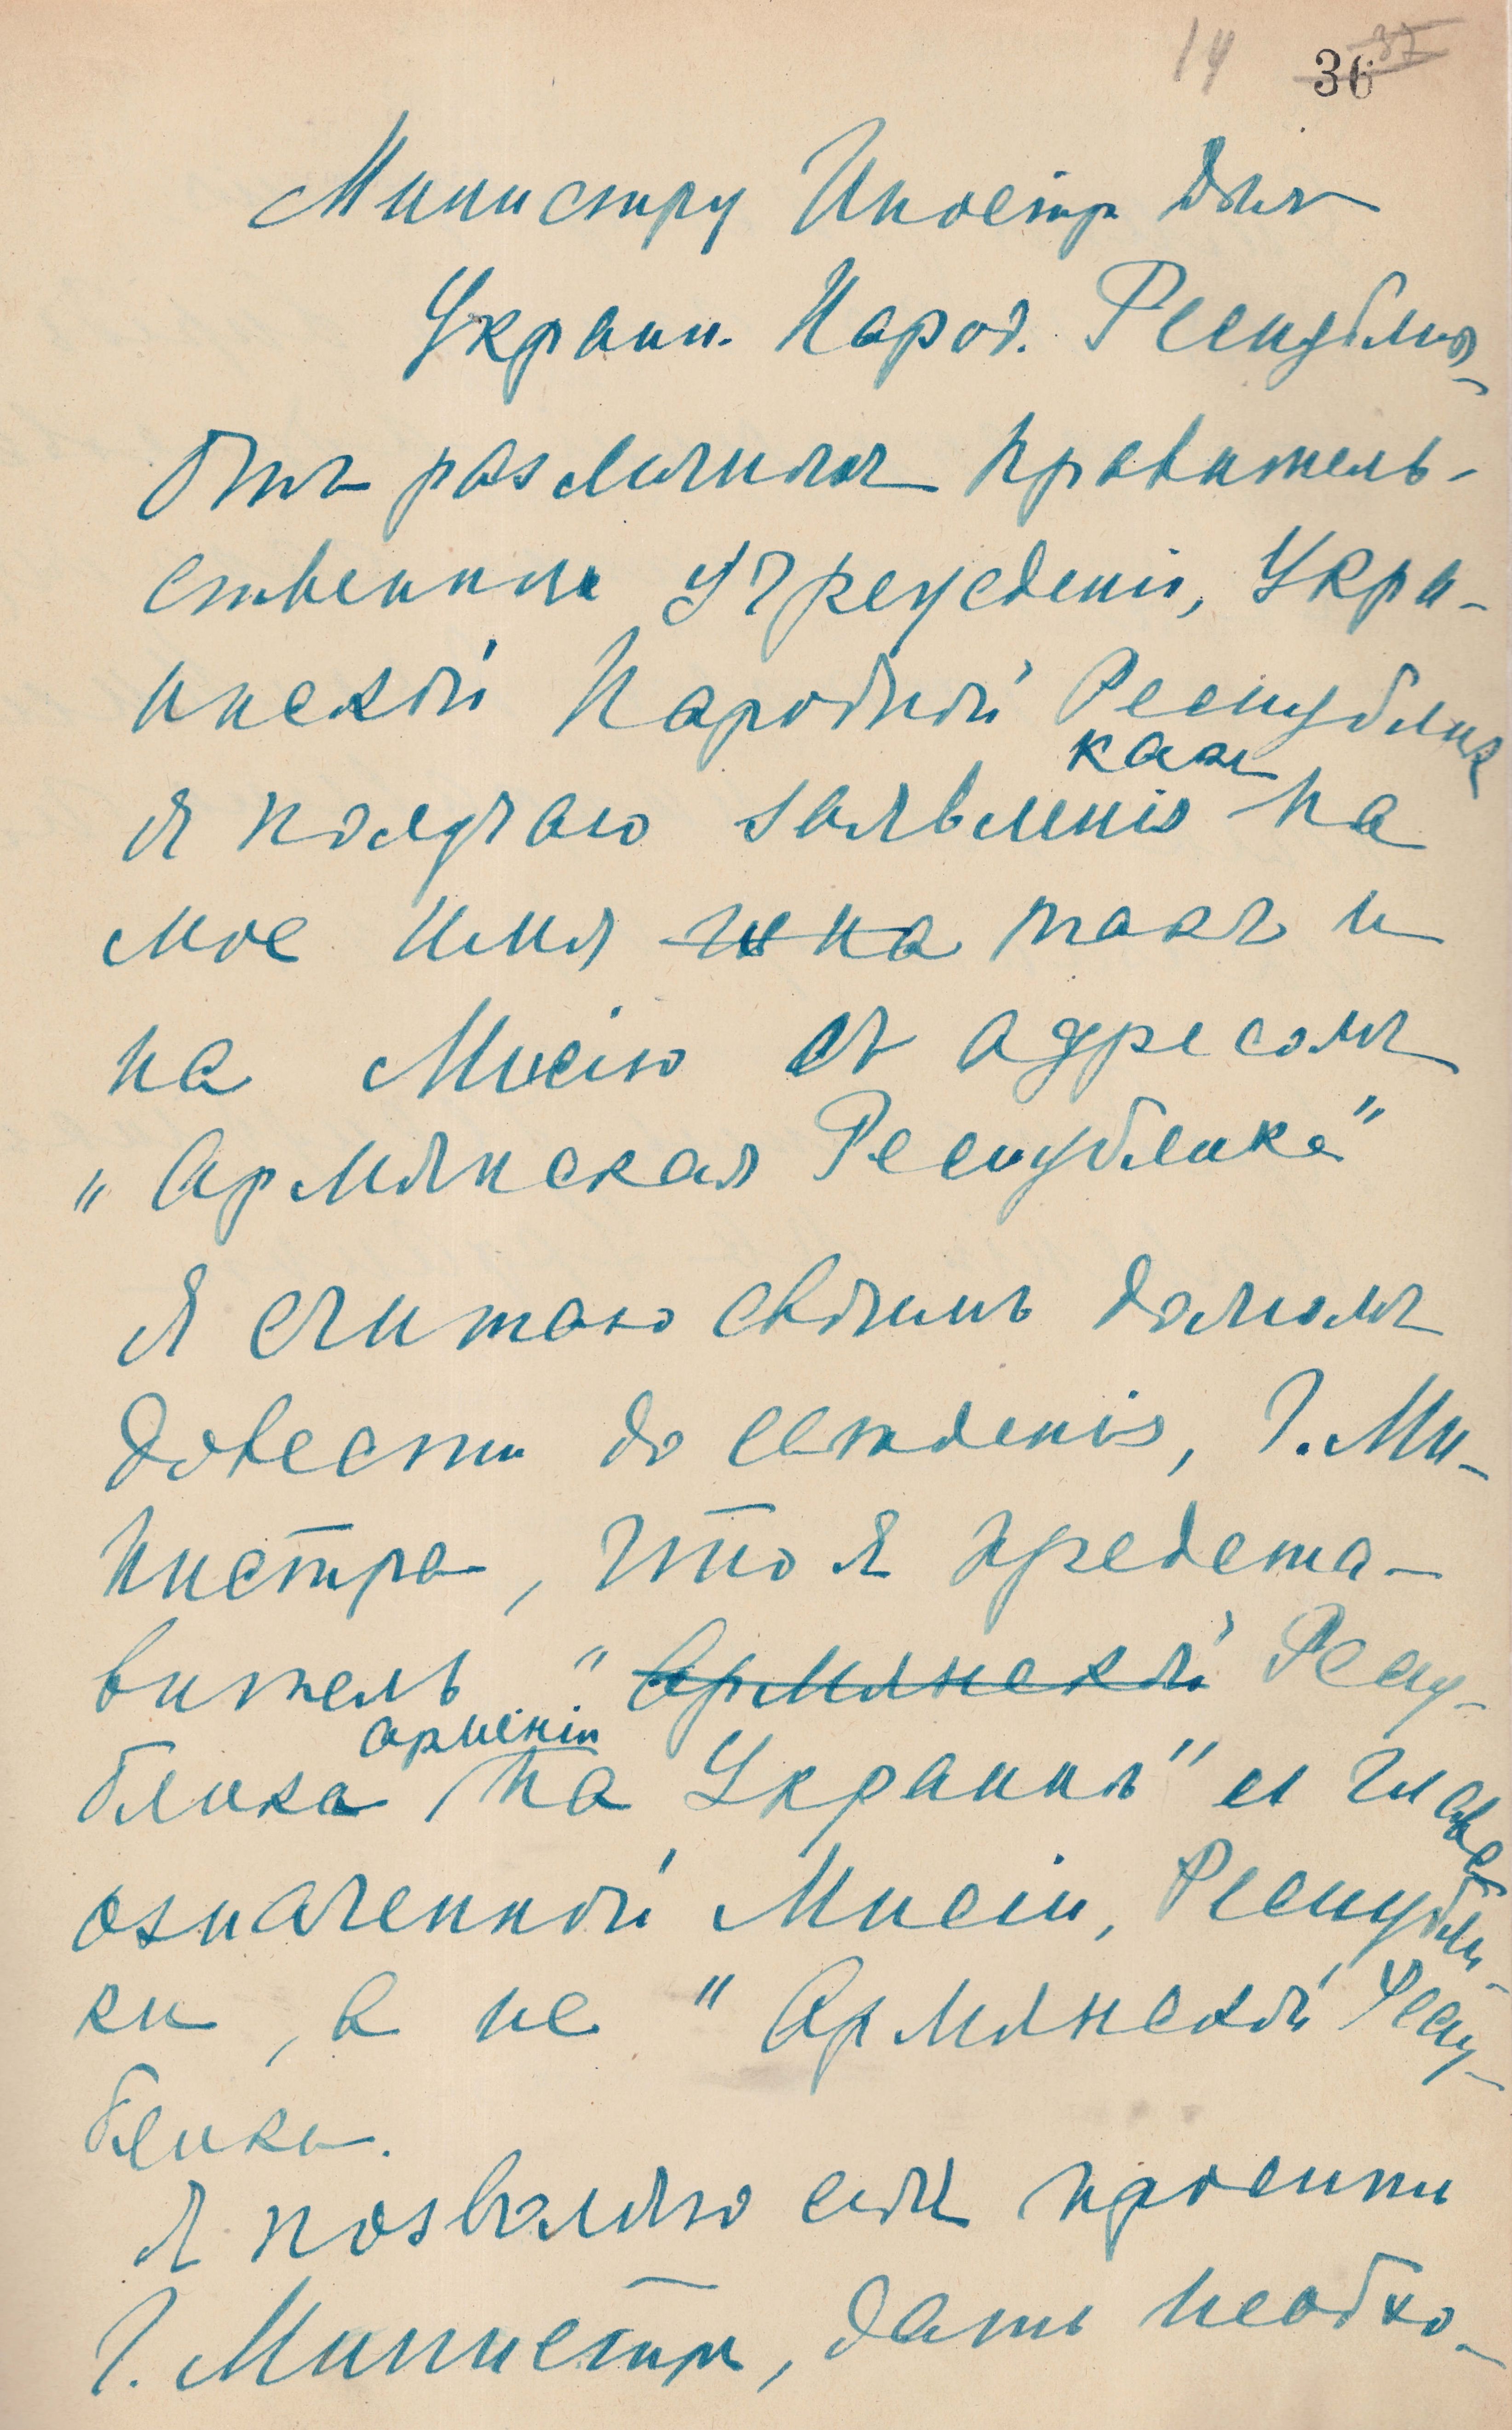 14 36 37
Министру Иностр Дѣлъ
Украин. Народ. Республики
Отъ различныхъ правитель-
ственныхъ учрежденій, Укра-
инской Народной Республик
я получаю заявленія какъ на
мое имя и на такъ и
на Мисію съ адресомъ
"Армянская Республика"
Я считаю своимъ долгомъ
довести до свѣденія, Г. Ми-
нистра, что я предста-
витель "Армянской Респу-
блика Арменіи на Украинѣ" и глава
означенной Мисіи, Республи-
ки, а не "Армянской Респу-
блики.
Я позволяю себѣ просить
Г. Министра, дать необхо-